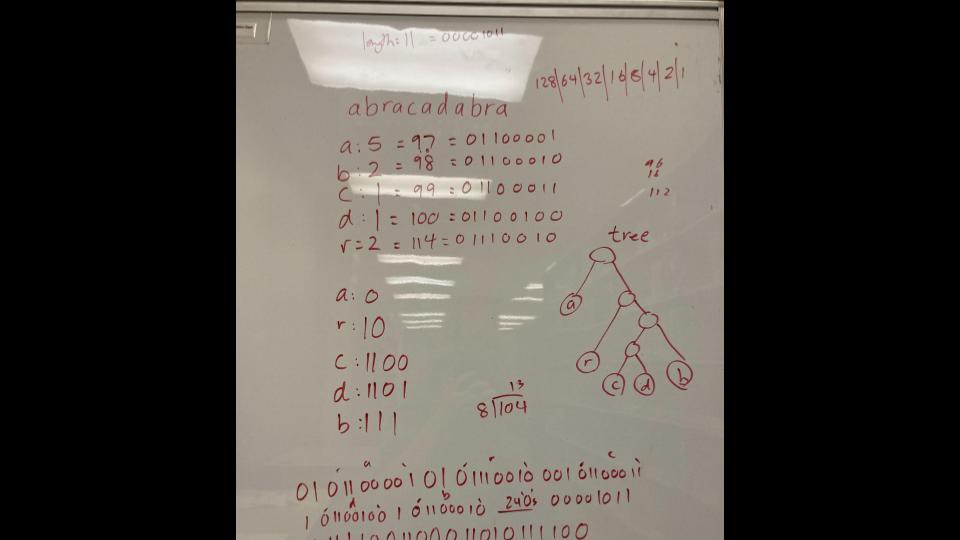 length: 11 = 00001011
128|64|32|16|8|4|2|1
abracadabra
a: 5 = 97 = 01100001
b: 2 = 98 = 01100010
c: 1 = 99 = 01100011
d: 1 = 100 = 01100100
r = 2 = 114 = 01110010
96
16
112
tree
a
r
c d b
a: 0
r: 10
c: 1100
d: 1101
b: 111
13
8 104
a r c
01 01100001 01 01110010 001 01100011
d b
1 01100100 1 01100010 24 0's 00001011